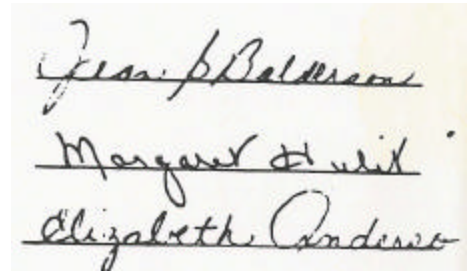 Jean S Balderson
Margaret Hulit
Elizabeth Anderso